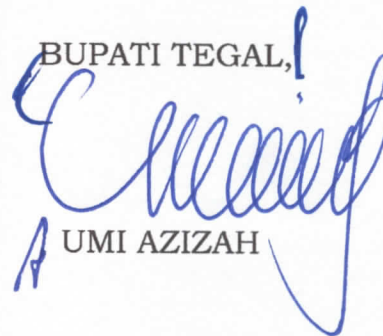 BUPATI TEGAL,
UMI AZIZAH